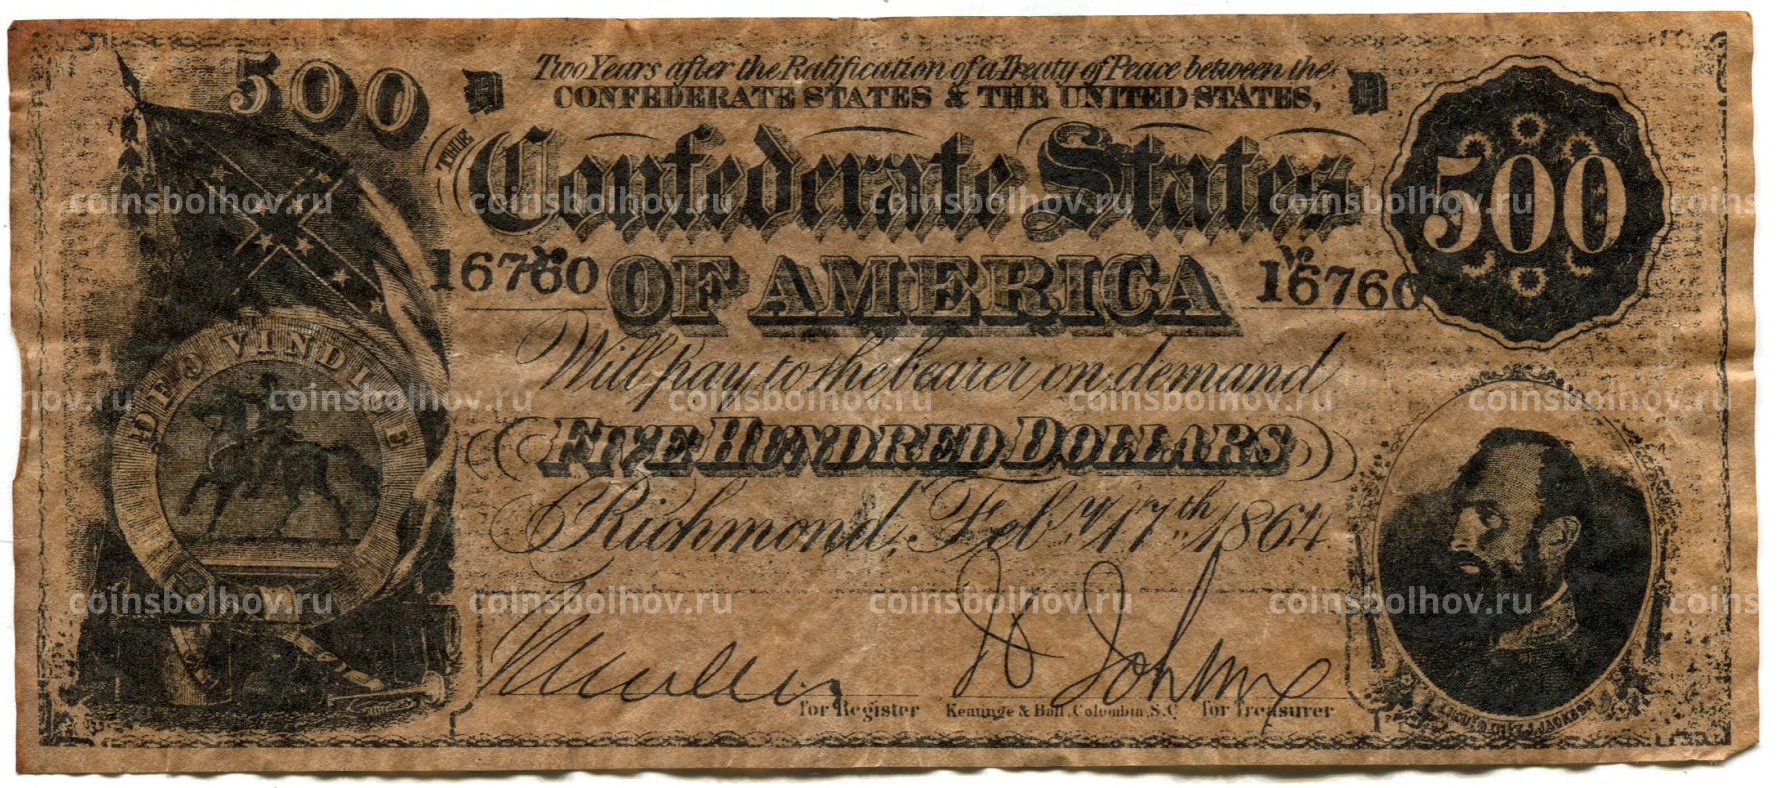 500
D
Two Years after the Ratification of a Treaty of Peace between the
D
CONFEDERATE STATES & THE UNITED STATES,
THE
Confederate States
500
16760
No
OF AMERICA
No
16760
Will pay to the bearer on demand
DEO VINDICE
FIVE HUNDRED DOLLARS
Richmond, Feby. 17th 1864.
for Register
Keatinge & Ball, Columbia, S.C.
for Treasurer
coinsbolhov.ru coinsbolhov.ru coinsbolhov.ru coinsbolhov.ru coins
hov.ru coinsbolhov.ru coinsbolhov.ru coinsbolhov.ru coinsbolhov.ru
coinsbolhov.ru coinsbolhov.ru coinsbolhov.ru coinsbolhov.ru coins